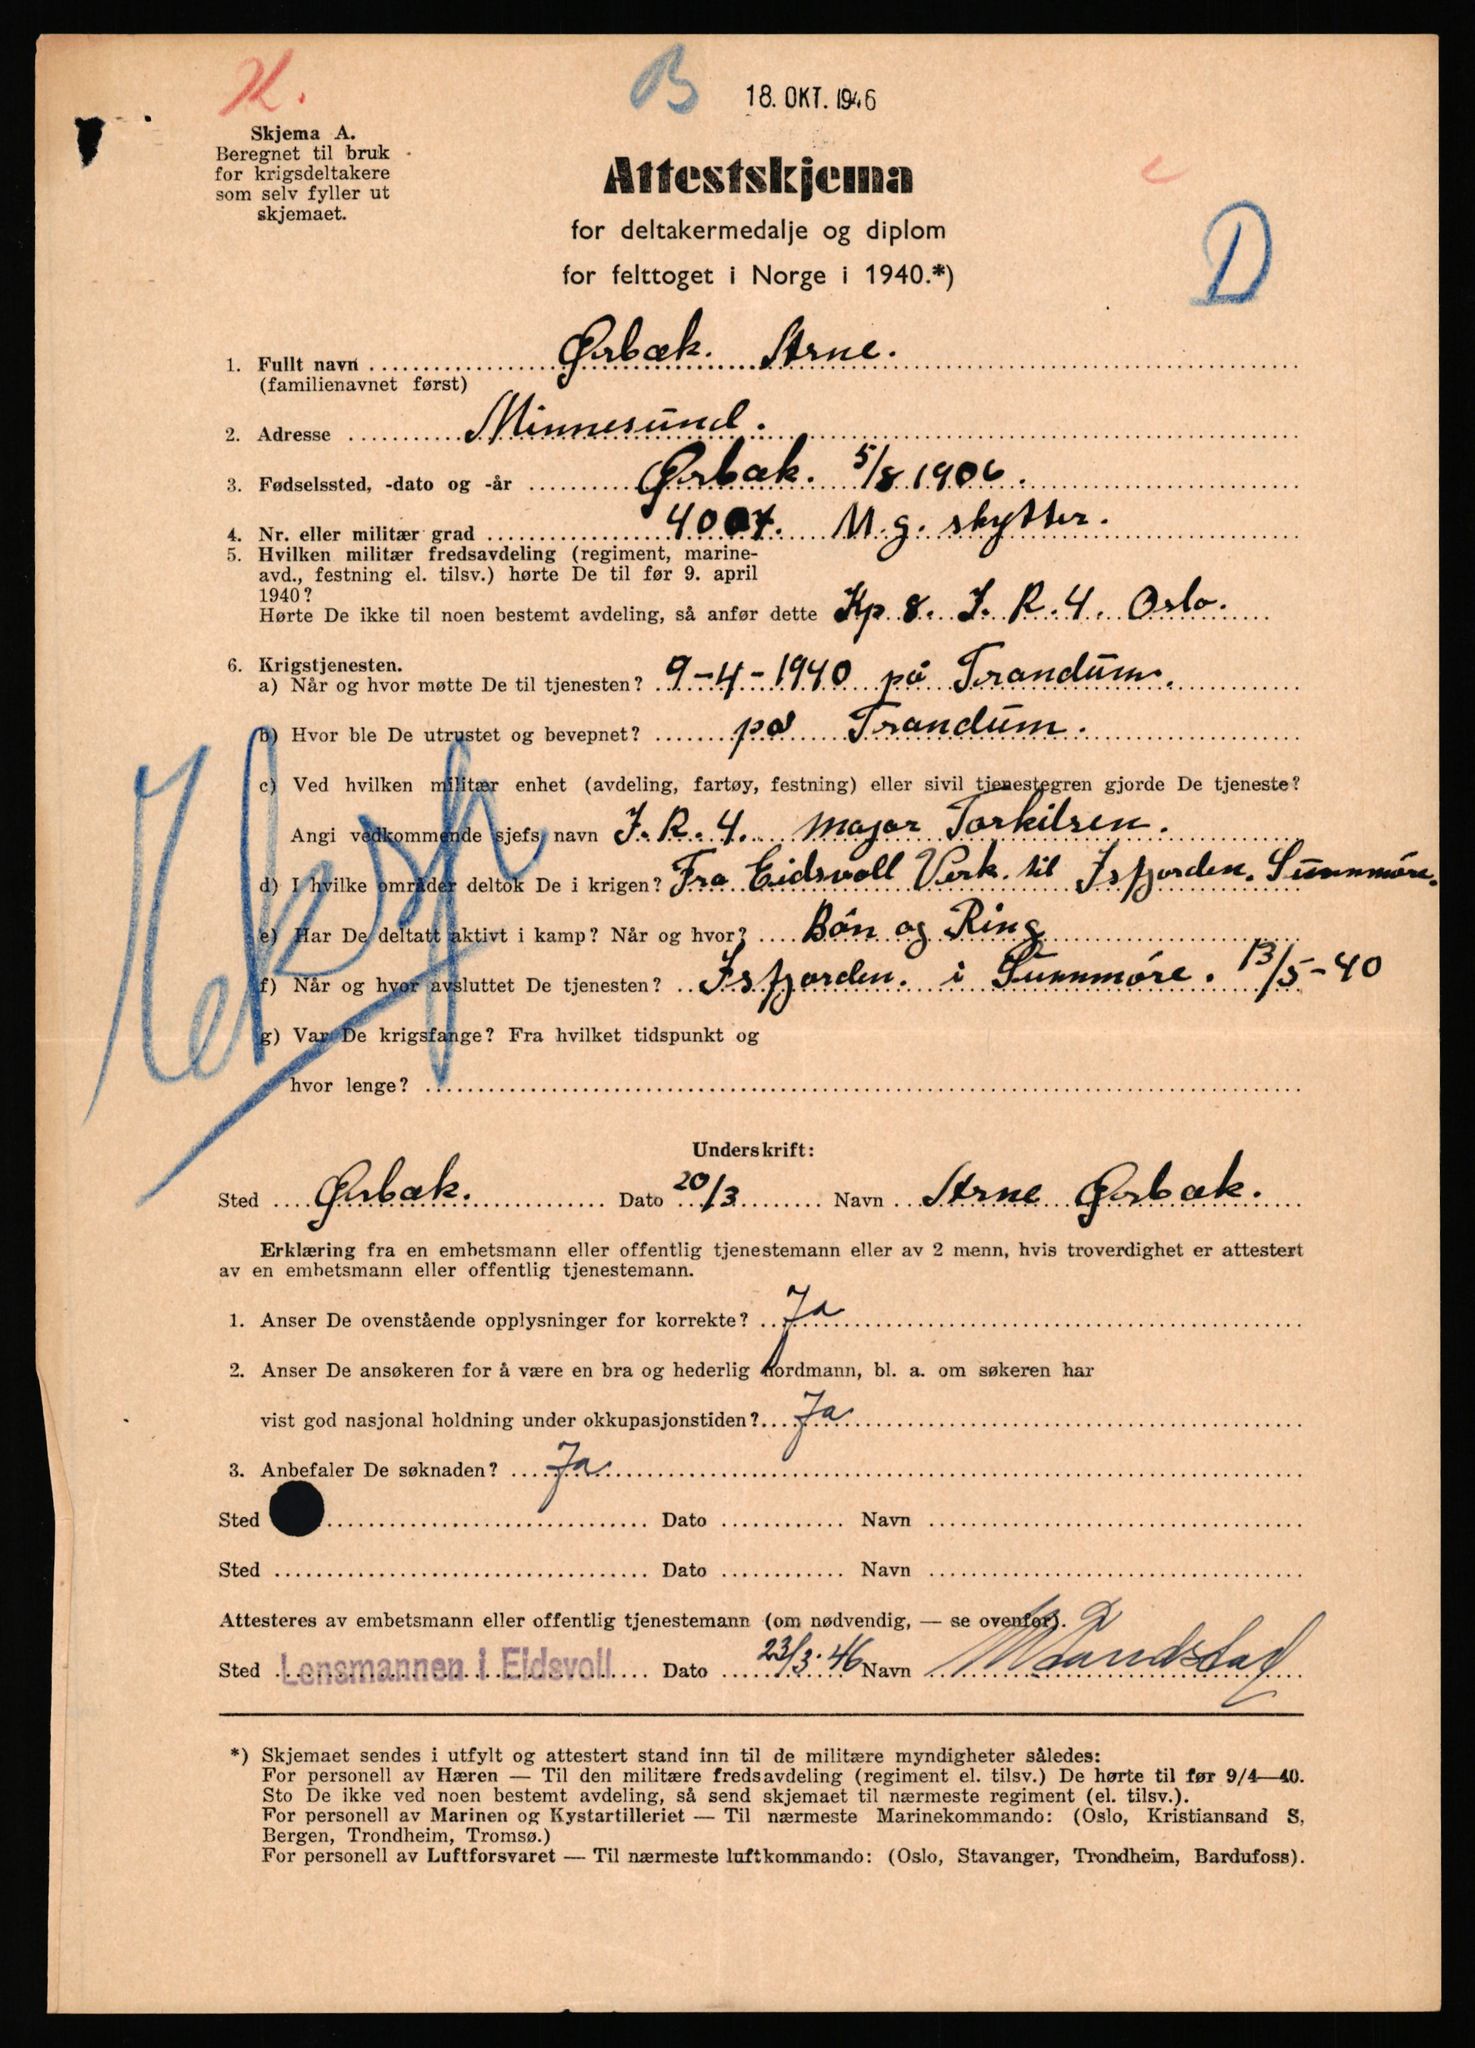 H.
B
18. OKT. 1946
Skjema A.
Beregnet til bruk
for krigsdeltakere
som selv fyller ut
skjemaet.
Attestskjema
for deltakermedalje og diplom
for felttoget i Norge i 1940.*)
D
1. Fullt navn Ørbæk. Arne.
(familienavnet først)
2. Adresse Minnesund.
3. Fødselssted, -dato og -år Ørbæk. 5/8 1906.
4. Nr. eller militær grad 4007. M.g. skytter.
5. Hvilken militær fredsavdeling (regiment, marine-
avd., festning el. tilsv.) hørte De til før 9. april
1940?
Hørte De ikke til noen bestemt avdeling, så anfør dette Kp 8. I. R. 4. Oslo.
6. Krigstjenesten.
a) Når og hvor møtte De til tjenesten? 9-4-1940 på Trandum.
b) Hvor ble De utrustet og bevepnet? på Trandum.
c) Ved hvilken militær enhet (avdeling, fartøy, festning) eller sivil tjenestegren gjorde De tjeneste?
Angi vedkommende sjefs navn I. R. 4. major Torkilsen.
d) I hvilke områder deltok De i krigen? Fra Eidsvoll Verk til Isfjorden. Sunnmøre.
e) Har De deltatt aktivt i kamp? Når og hvor? Bøn og Ring
f) Når og hvor avsluttet De tjenesten? Isfjorden. i Sunnmøre. 13/5-40
g) Var De krigsfange? Fra hvilket tidspunkt og
hvor lenge?
Underskrift:
Sted Ørbæk. Dato 20/3 Navn Arne Ørbæk.
Erklæring fra en embetsmann eller offentlig tjenestemann eller av 2 menn, hvis troverdighet er attestert
av en embetsmann eller offentlig tjenestemann.
1. Anser De ovenstående opplysninger for korrekte? Ja
2. Anser De ansøkeren for å være en bra og hederlig nordmann, bl. a. om søkeren har
vist god nasjonal holdning under okkupasjonstiden? Ja
3. Anbefaler De søknaden? Ja
Sted Dato Navn
Sted Dato Navn
Attesteres av embetsmann eller offentlig tjenestemann (om nødvendig, — se ovenfor).
Sted Lensmannen i Eidsvoll Dato 23/3. 46 Navn
*) Skjemaet sendes i utfylt og attestert stand inn til de militære myndigheter således:
For personell av Hæren — Til den militære fredsavdeling (regiment el. tilsv.) De hørte til før 9/4—40.
Sto De ikke ved noen bestemt avdeling, så send skjemaet til nærmeste regiment (el. tilsv.).
For personell av Marinen og Kystartilleriet — Til nærmeste Marinekommando: (Oslo, Kristiansand S,
Bergen, Trondheim, Tromsø.)
For personell av Luftforsvaret — Til nærmeste luftkommando: (Oslo, Stavanger, Trondheim, Bardufoss).